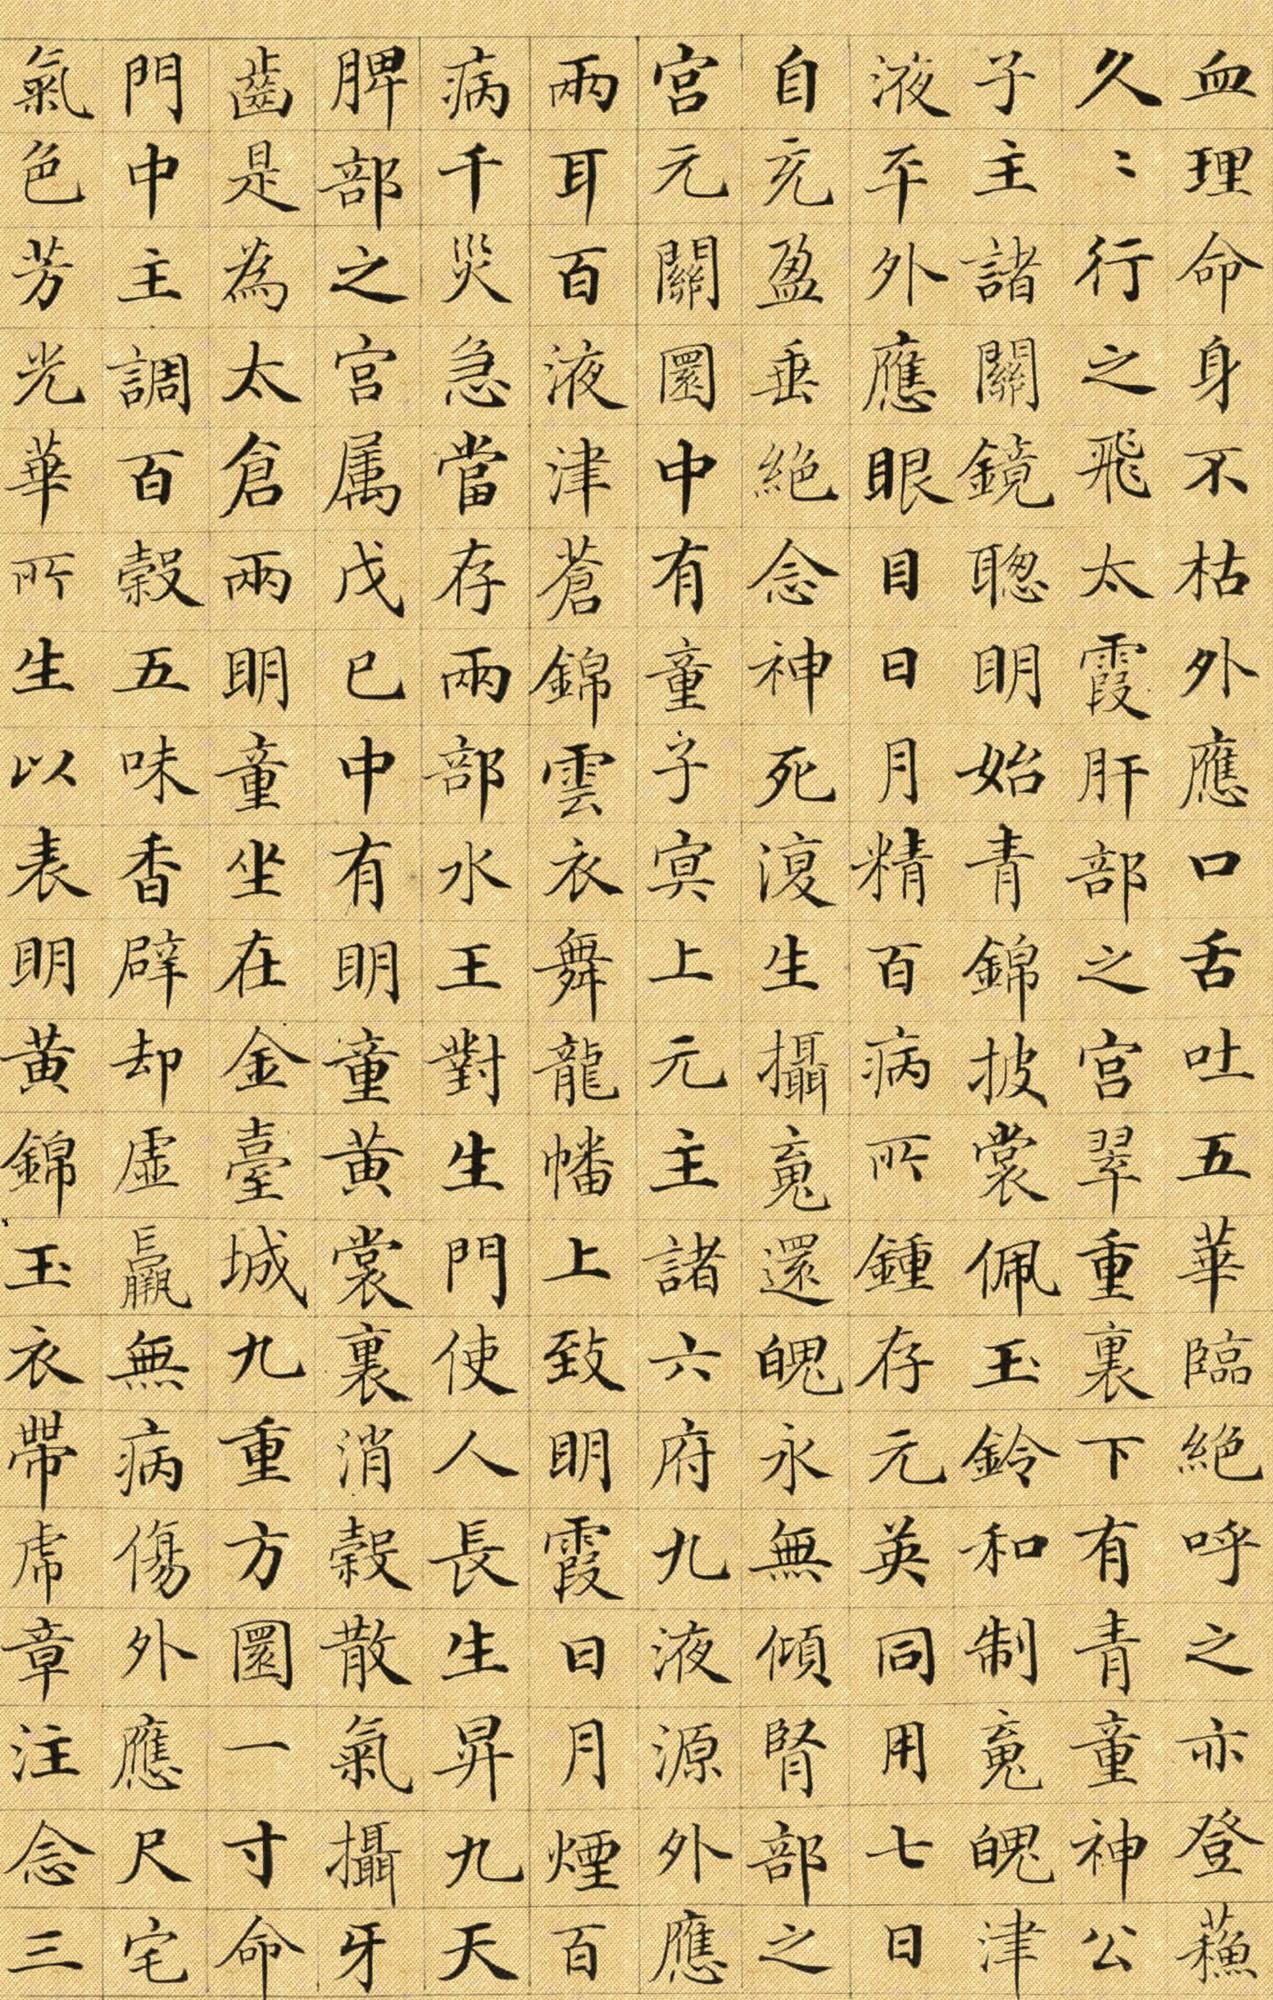 血理命身不枯外應口舌吐五華臨絕呼之亦登蘓
久〻行之飛太霞肝部之宮翠重裏下有青童神公
子主諸關鏡聰明始青錦披裳佩玉鈴和制䰟魄津
液平外應眼目日月精百病所鍾存元英同用七日
自充盈垂絕念神死復生攝䰟還魄永無傾腎部之
宮元關圜中有童子冥上元主諸六府九液源外應
兩耳百液津蒼錦雲衣舞龍幡上致明霞日月煙百
病千災急當存兩部水王對生門使人長生昇九天
脾部之宮属戊己中有明童黃裳裏消穀散氣攝牙
齒是為太倉兩明童坐在金臺城九重方圜一寸命
門中主調百穀五味香辟却虛羸無病傷外應尺宅
氣色芳光華所生以表明黃錦玉衣帶虎章注念三